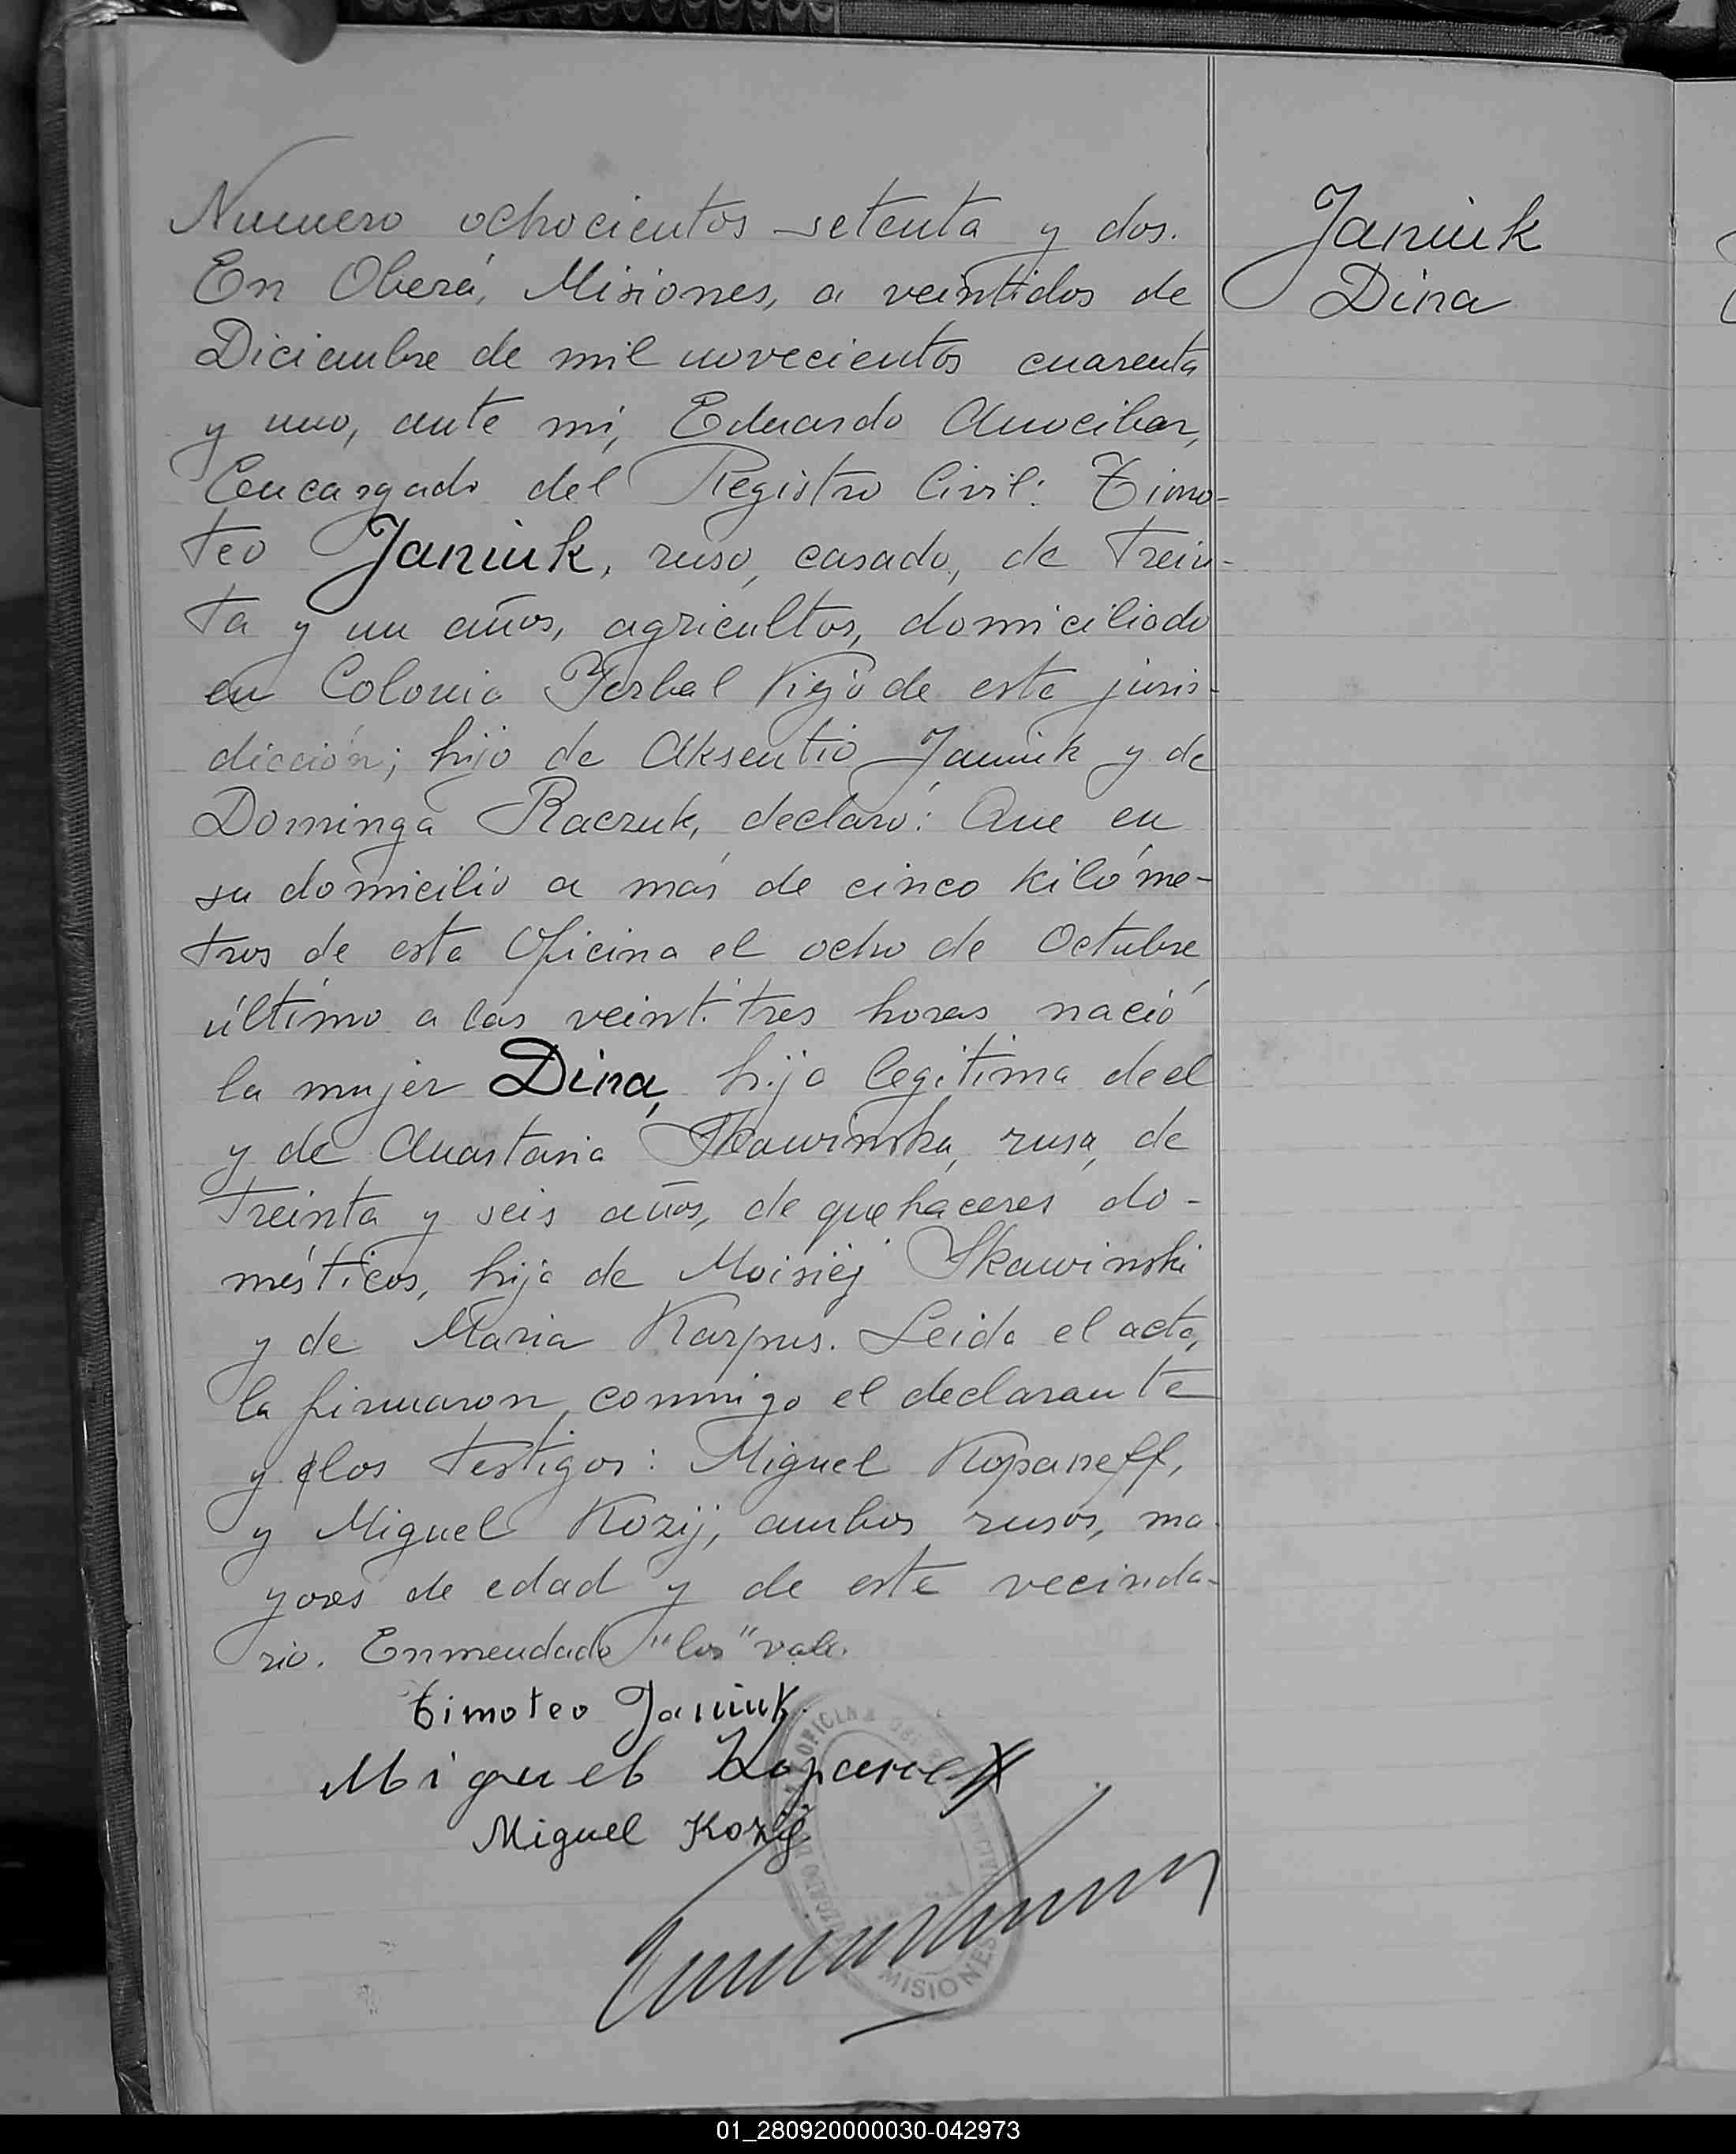 Numero ochocientos setenta y dos.
En Oberá, Misiones, a veintidos de
Diciembre de mil novecientos cuarenta
y uno, ante mi, Eduardo Anocibar,
Encargado del Registro Civil: Timo-
teo Janiuk, ruso, casado, de trein-
ta y un años, agricultor, domiciliado
en Colonia Yerbal Viejo de esta juris-
dicción; hijo de Aksentio Janiuk y de
Dominga Raczuk, declaró: Que en
su domicilio a más de cinco kilóme-
tros de esta Oficina el ocho de Octubre
último a las veintitres horas nació
la mujer Dina, hija legítima de el
y de Anastasia Skawinska, rusa, de
treinta y seis años, de quehaceres do-
mésticos, hija de Moisiej Skawinski
y de Maria Karpus. Leida el acta,
la firmaron conmigo el declarante
y los testigos: Miguel Kopaneff,
y Miguel Kozij, ambos rusos, ma-
yores de edad y de este vecinda-
rio. Enmendado "los" vale.
Timoteo Janiuk
Miguel Kopaneff
Miguel Kozij
OFICINA
MISIONES
Janiuk
Dina
01_280920000030-042973